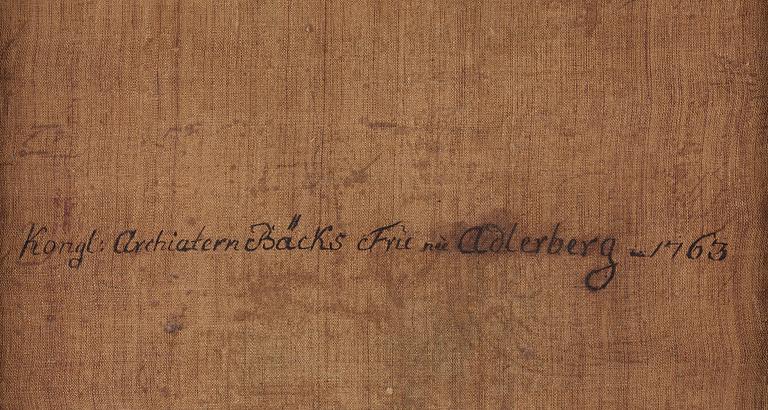 Kongl: Archiatern Bäcks Fru né Adlerberg – 1763